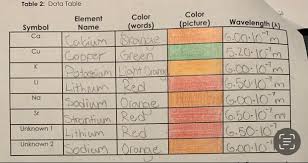 Table 2: Data Table
Symbol Element Name Color (words) Color (picture) Wavelength (λ)
Ca Calcium Orange 6.00·10⁻⁷m
Cu Copper Green 5.20·10⁻⁷m
K Potassium Light Orange 6.00·10⁻⁷m
Li Lithium Red 6.50·10⁻⁷m
Na Sodium Orange 6.00·10⁻⁷m
Sr Strontium Red 6.50·10⁻⁷m
Unknown 1 Lithium Red 6.50·10⁻⁷
Unknown 2 Sodium Orange 6.00·10⁻⁷m